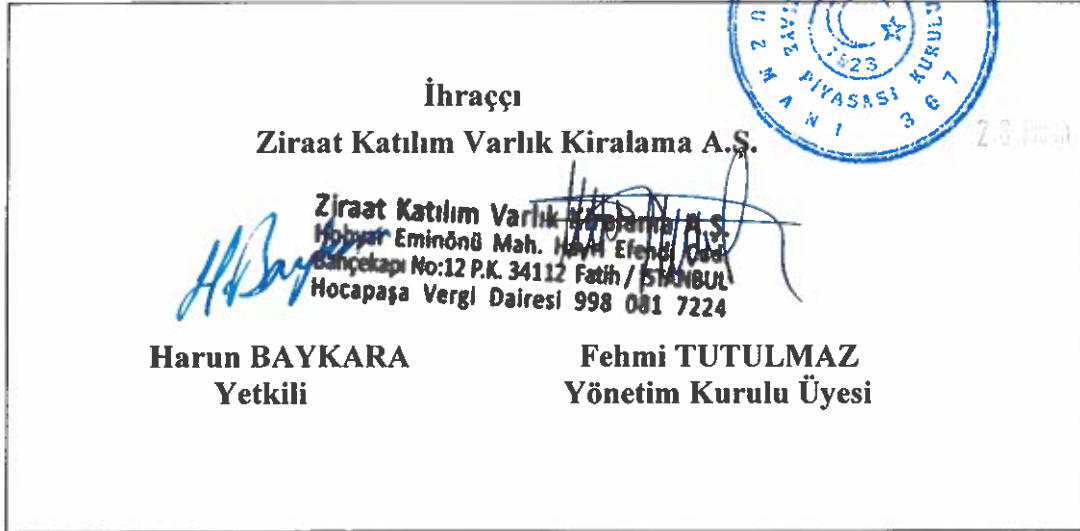 1923
PİYASASI KURULU
367
İhraççı
Ziraat Katılım Varlık Kiralama A.Ş.
Ziraat Katılım Varlık Kiralama A.Ş.
Hobyar Eminönü Mah. Hayri Efendi Cad.
Bahçekapı No:12 P.K. 34112 Fatih / İSTANBUL
Hocapaşa Vergi Dairesi 998 081 7224
H. Baykara
Harun BAYKARA
Fehmi TUTULMAZ
Yetkili
Yönetim Kurulu Üyesi